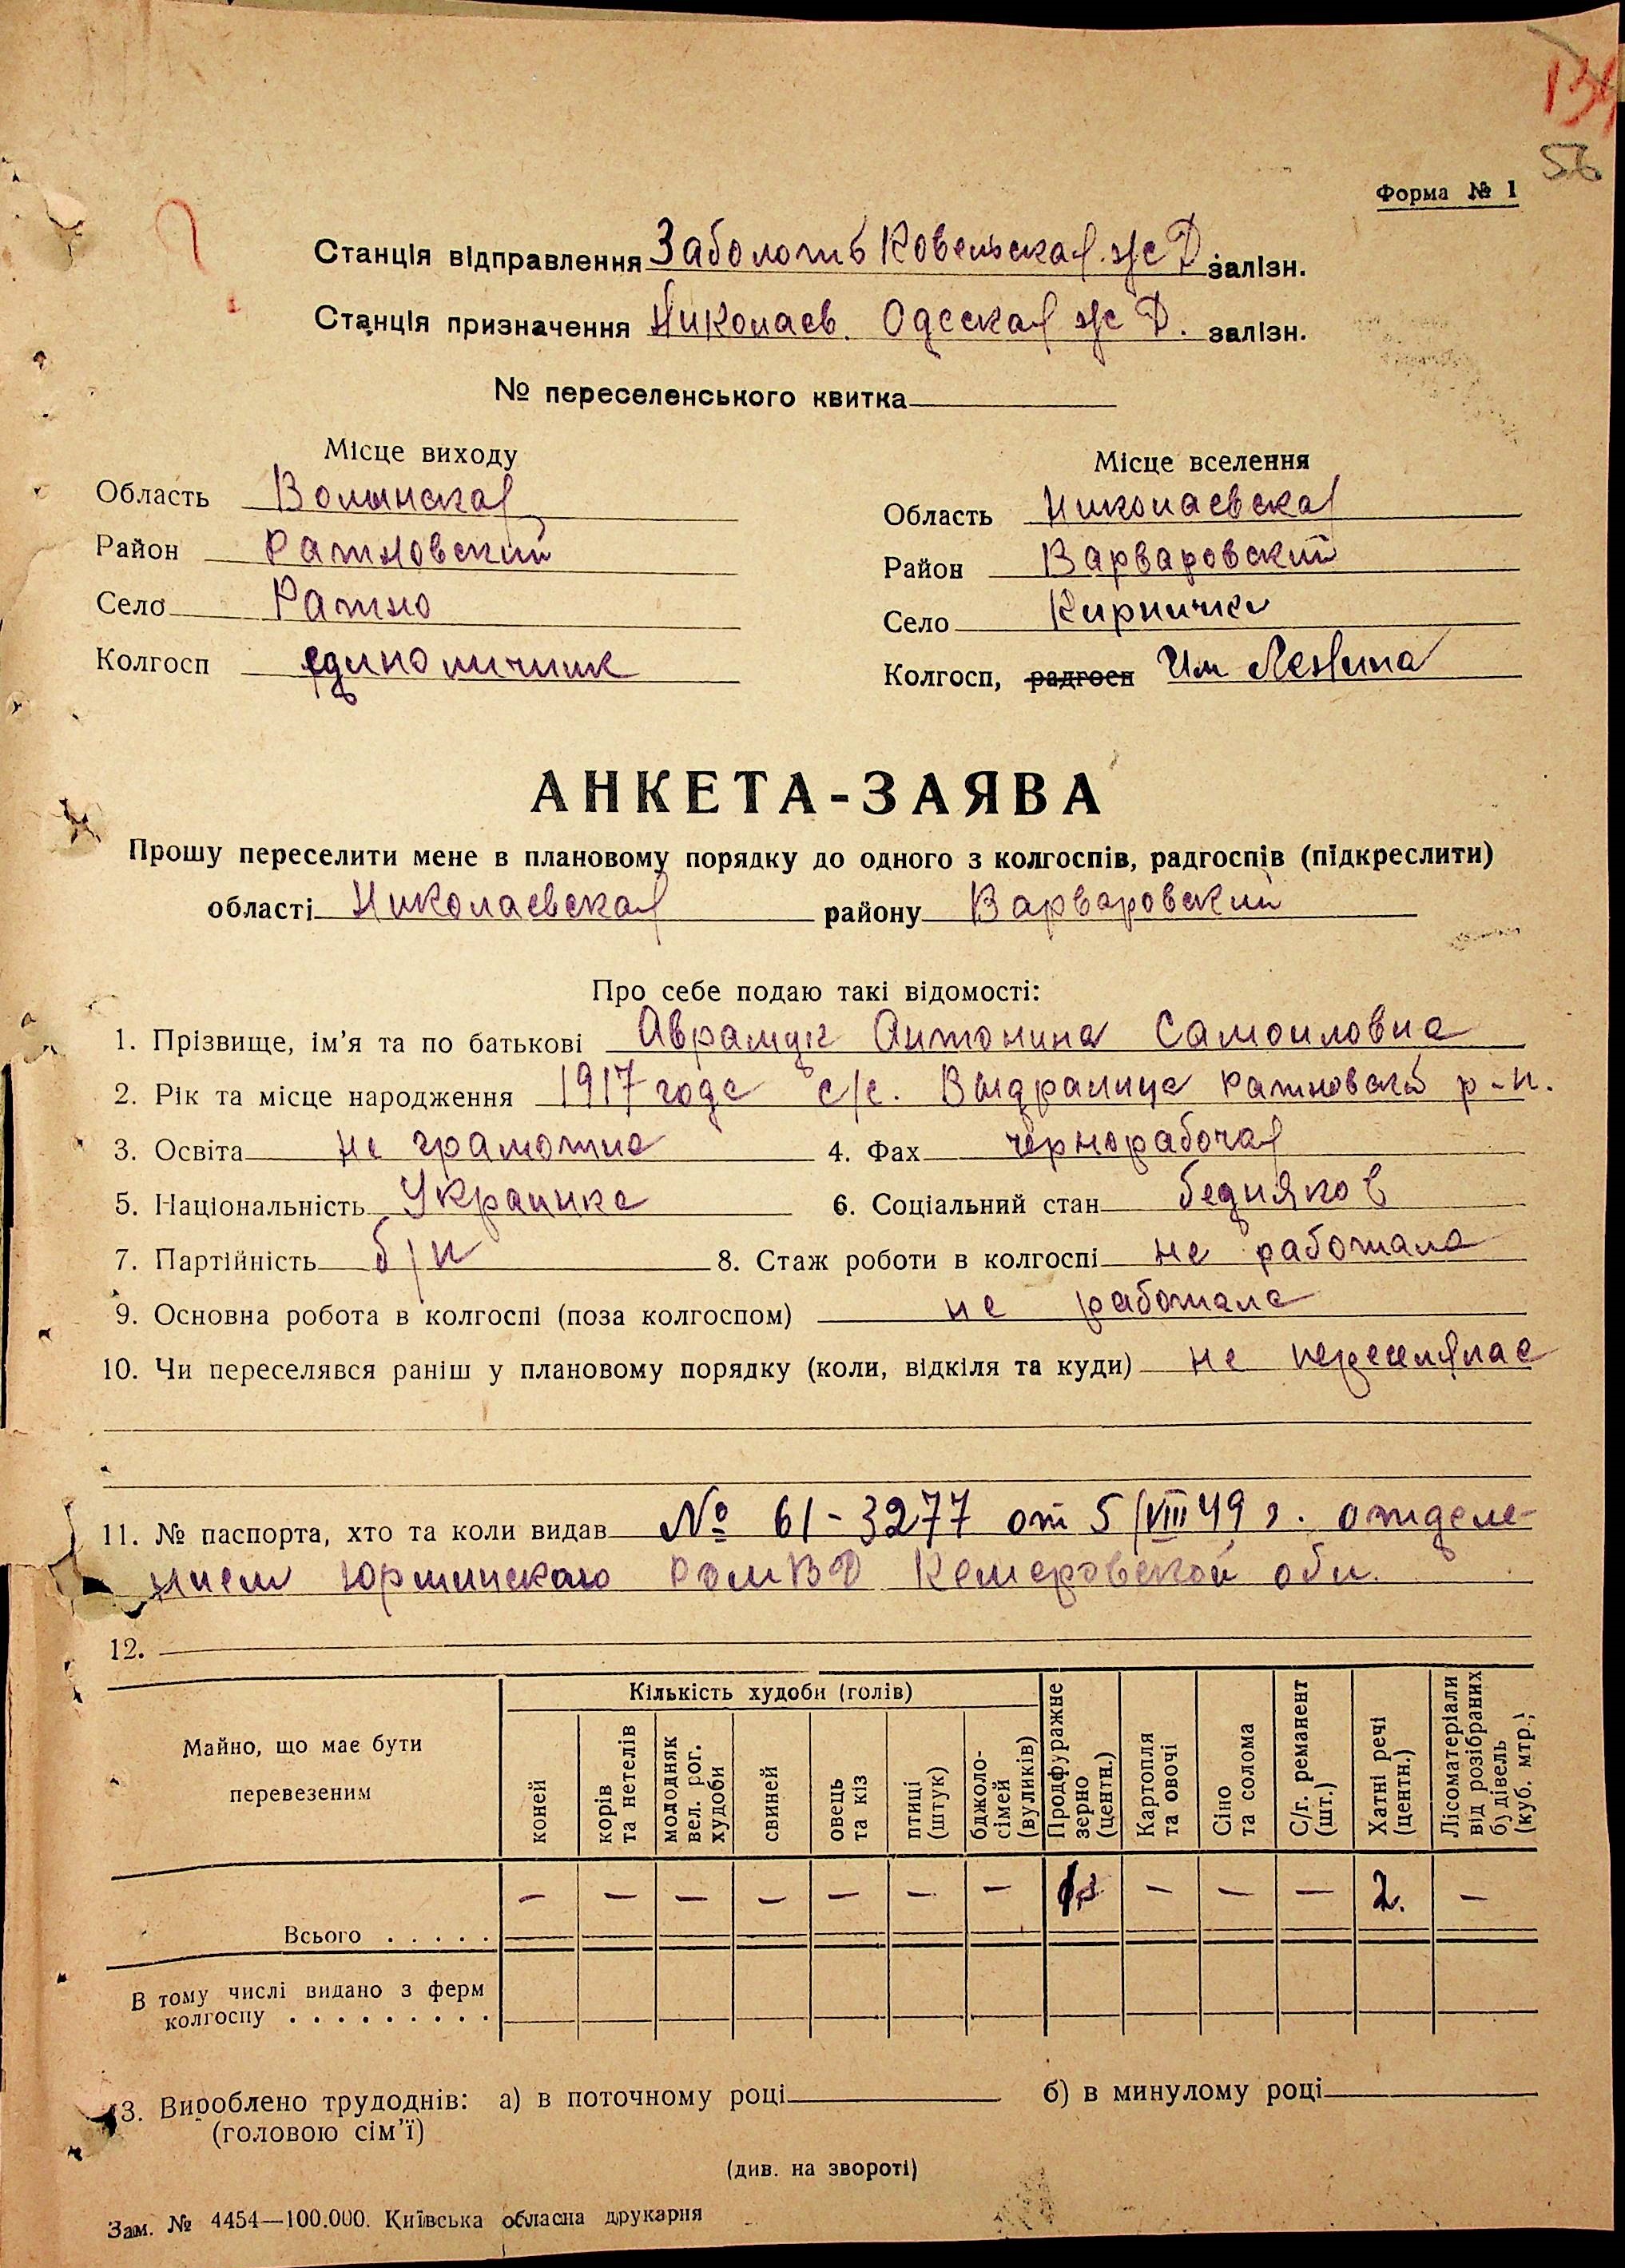 56
Форма № 1
Станція відправлення Заболотьб Ковельская жд залізн.
Станція призначення Николаев. Одеская жд. залізн.
№ переселенського квитка
Місце виходу
Місце вселення
Область Волынская
Область Николаевская
Район Ратновский
Район Варваровский
Село Ратно
Село Кирпички
Колгосп единоличник
Колгосп, радгосп Им Ленина
АНКЕТА-ЗАЯВА
Прошу переселити мене в плановому порядку до одного з колгоспів, радгоспів (підкреслити)
області Николаевская району Варваровский
Про себе подаю такі відомості:
1. Прізвище, ім'я та по батькові Аврамук Антонина Самоиловна
2. Рік та місце народження 1917 года с/с. Выдраница Ратновской р-н.
3. Освіта не грамотна 4. Фах чернорабочая
5. Національність Украинка 6. Соціальний стан бедняков
7. Партійність б/п 8. Стаж роботи в колгоспі не работала
9. Основна робота в колгоспі (поза колгоспом) не работала
10. Чи переселявся раніш у плановому порядку (коли, відкіля та куди) не переселялас
11. № паспорта, хто та коли видав № 61-3277 от 5/VIII 49 г. отделе-
нием Юргинскаго РОМВД Кемеровской обл.
12.
Майно, що має бути перевезеним
Кількість худоби (голів)
коней
корів та нетелів
молодняк вел. рог. худоби
свиней
овець та кіз
птиці (штук)
бджоло-сімей (вуликів)
Продфуражне зерно (центн.)
Картопля та овочі
Сіно та солома
С/г. реманент (шт.)
Хатні речі (центн.)
Лісоматеріали від розібраних будівель (куб. мтр.)
Всього . . . . . — — — — — — — — — — 2. —
В тому числі видано з ферм
колгоспу . . . . . . . . .
13. Вироблено трудоднів: а) в поточному році б) в минулому році
(головою сім'ї)
(див. на звороті)
Зам. № 4454—100.000. Київська обласна друкарня